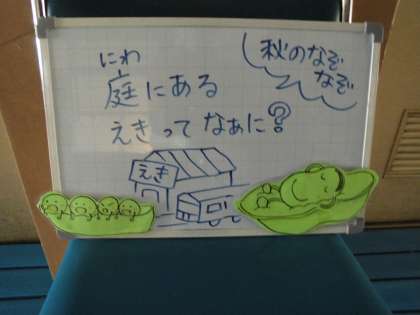 秋のなぞ
なぞ
にわ
庭にある
えきってなぁに?
えき